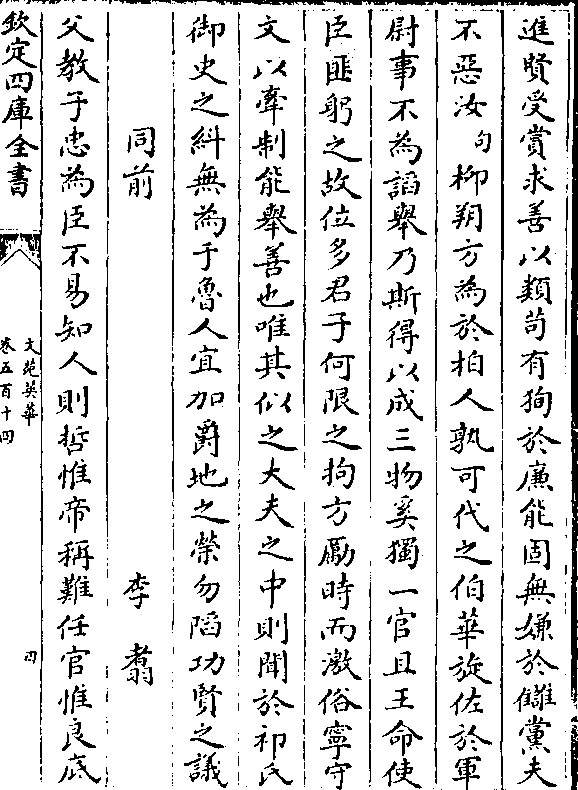 進賢受賞求善以類苟有狥於廉能固無嫌於讎黨夫
不惡汝句柳朔方為於柏人孰可代之伯華旋佐於軍
尉事不為謟舉乃斯得以成三物奚獨一官且王命使
臣匪躬之故位多君子何限之拘方勵時而激俗寧守
文以牽制能舉善也唯其似之大夫之中則聞於祁氏
御史之糾無為于魯人宜加爵地之榮勿陷功賢之議
同前 李翥
父教子忠為臣不易知人則哲惟帝稱難任官惟良底
欽定四庫全書
文苑英華
卷五百十四
四